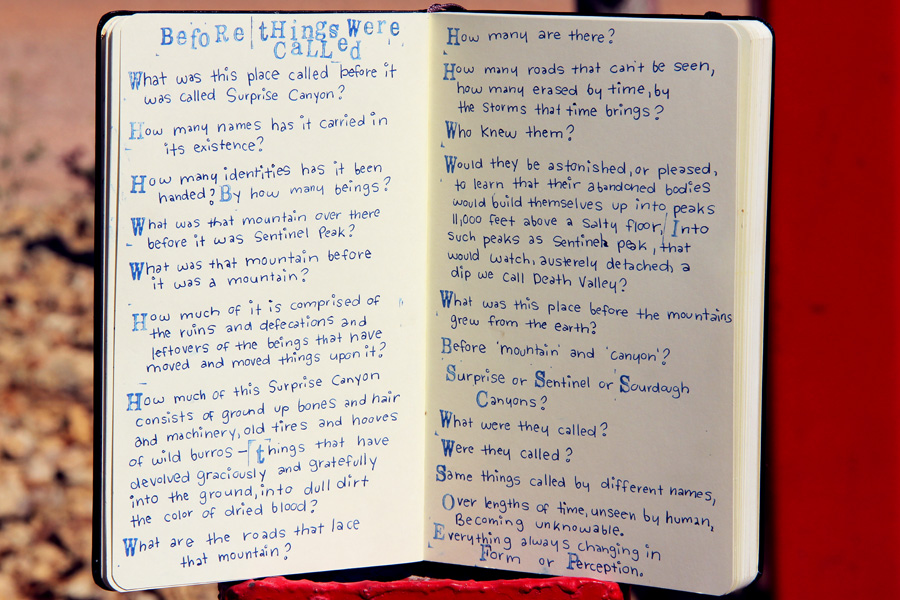 Before tHings Were
CaLLed
What was this place called before it
was called Surprise Canyon?
How many names has it carried in
its existence?
How many identities has it been
handed? By how many beings?
What was that mountain over there
before it was Sentinel Peak?
What was that mountain before
it was a mountain?
How much of it is comprised of
the ruins and defecations and
leftovers of the beings that have
moved and moved things upon it?
How much of this Surprise Canyon
consists of ground up bones and hair
and machinery, old tires and hooves
of wild burros – things that have
devolved graciously and gratefully
into the ground, into dull dirt
the color of dried blood?
What are the roads that lace
that mountain?
How many are there?
How many roads that can't be seen,
how many erased by time, by
the storms that time brings?
Who knew them?
Would they be astonished, or pleased,
to learn that their abandoned bodies
would build themselves up into peaks
11,000 feet above a salty floor, Into
such peaks as Sentinel peak, that
would watch, austerely detached, a
dip we call Death Valley?
What was this place before the mountains
grew from the earth?
Before 'mountain' and 'canyon'?
Surprise or Sentinel or Sourdough
Canyons?
What were they called?
Were they called?
Same things called by different names,
Over lengths of time, unseen by human,
Becoming unknowable.
Everything always changing in
Form or Perception.